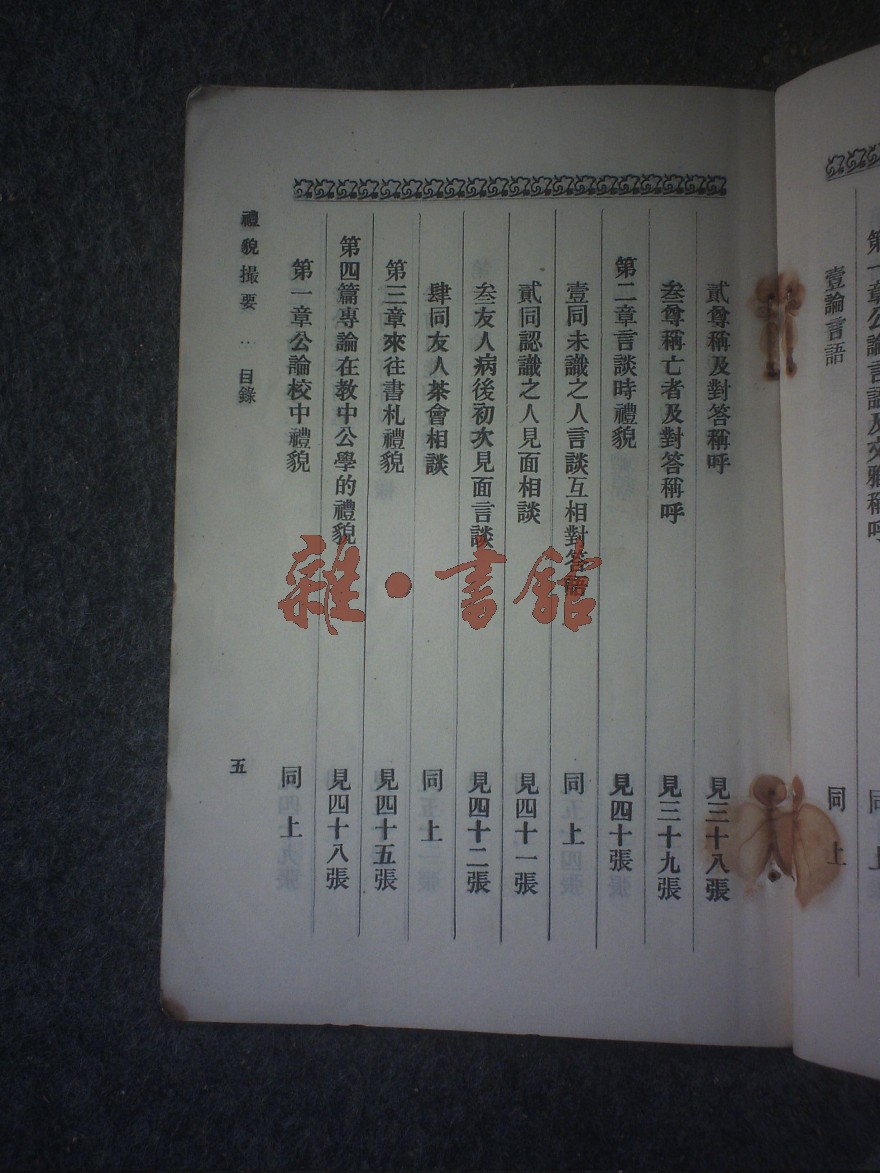 第一章公論言語及交雅稱呼
同上
壹論言語
同上
貳尊稱及對答稱呼
見三十八張
叁尊稱亡者及對答稱呼
見三十九張
第二章言談時禮貌
見四十張
壹同未識之人言談互相對答語
同上
貳同認識之人見面相談
見四十一張
叁友人病後初次見面言談
見四十二張
肆同友人茶會相談
同上
第三章來往書札禮貌
見四十五張
第四篇專論在教中公學的禮貌
見四十八張
第一章公論校中禮貌
同上
禮貌撮要：目錄
五
雜·書館